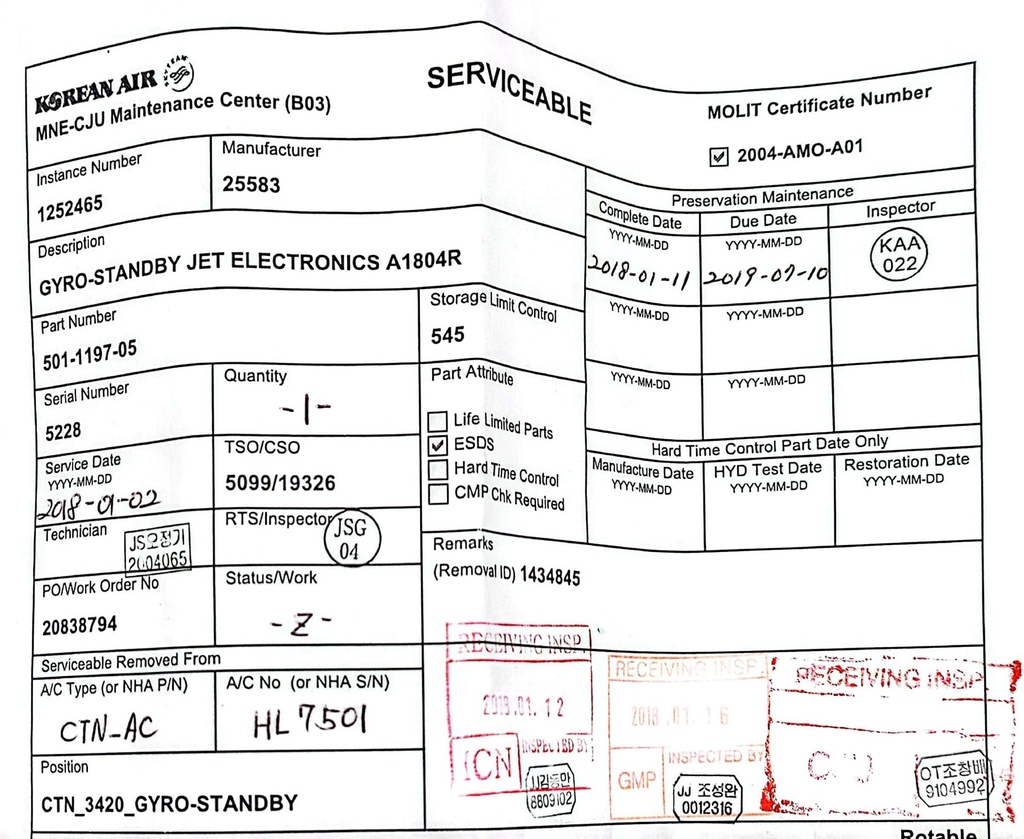 KOREAN AIR
SKYTEAM
MNE-CJU Maintenance Center (B03)
SERVICEABLE
MOLIT Certificate Number
2004-AMO-A01
Instance Number
1252465
Manufacturer
25583
Preservation Maintenance
Complete Date
Due Date
Inspector
YYYY-MM-DD
YYYY-MM-DD
2018-01-11
2019-07-10
KAA
022
YYYY-MM-DD
YYYY-MM-DD
YYYY-MM-DD
YYYY-MM-DD
Description
GYRO-STANDBY JET ELECTRONICS A1804R
Part Number
501-1197-05
Storage Limit Control
545
Serial Number
5228
Quantity
-1-
Part Attribute
Life Limited Parts
ESDS
Hard Time Control
CMP Chk Required
Hard Time Control Part Date Only
Manufacture Date
HYD Test Date
Restoration Date
YYYY-MM-DD
YYYY-MM-DD
YYYY-MM-DD
Service Date
YYYY-MM-DD
2018-01-02
TSO/CSO
5099/19326
Technician
JS오정기
2004065
RTS/Inspector
JSG
04
Remarks
(Removal ID) 1434845
PO/Work Order No
20838794
Status/Work
-Z-
Serviceable Removed From
A/C Type (or NHA P/N)
CTN-AC
A/C No (or NHA S/N)
HL7501
Position
CTN_3420_GYRO-STANDBY
RECEIVING INSP.
2018.01.12
ICN
INSPECTED BY
JJ김동만
8809102
RECEIVING INSP.
2018.01.16
GMP
INSPECTED BY
JJ 조성완
0012316
RECEIVING INSP
OT조창배
9104992
Rotable